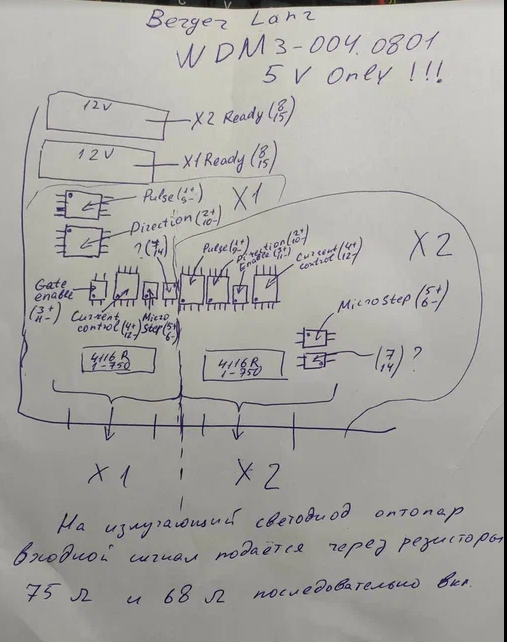 Berger Lahr
WDM3-004.0801
5V Only !!!
12V
X2 Ready (8/15)
12V
X1 Ready (8/15)
Pulse (1+/9-)
X1
Direction (2+/10-)
?(7/14)
Pulse (1+/9-)
Direction (2+/10-)
Enable (3+/11-)
Current control (4+/12-)
X2
Gate enable (3+/11-)
Current control (4+/12-)
Micro Step (5+/6-)
MicroStep (5+/6-)
4116R
1-750
4116R
1-750
(7/14) ?
X1
X2
На излучающий светодиод оптопар
входной сигнал подаётся через резисторы
75 Ω и 68 Ω последовательно вкл.